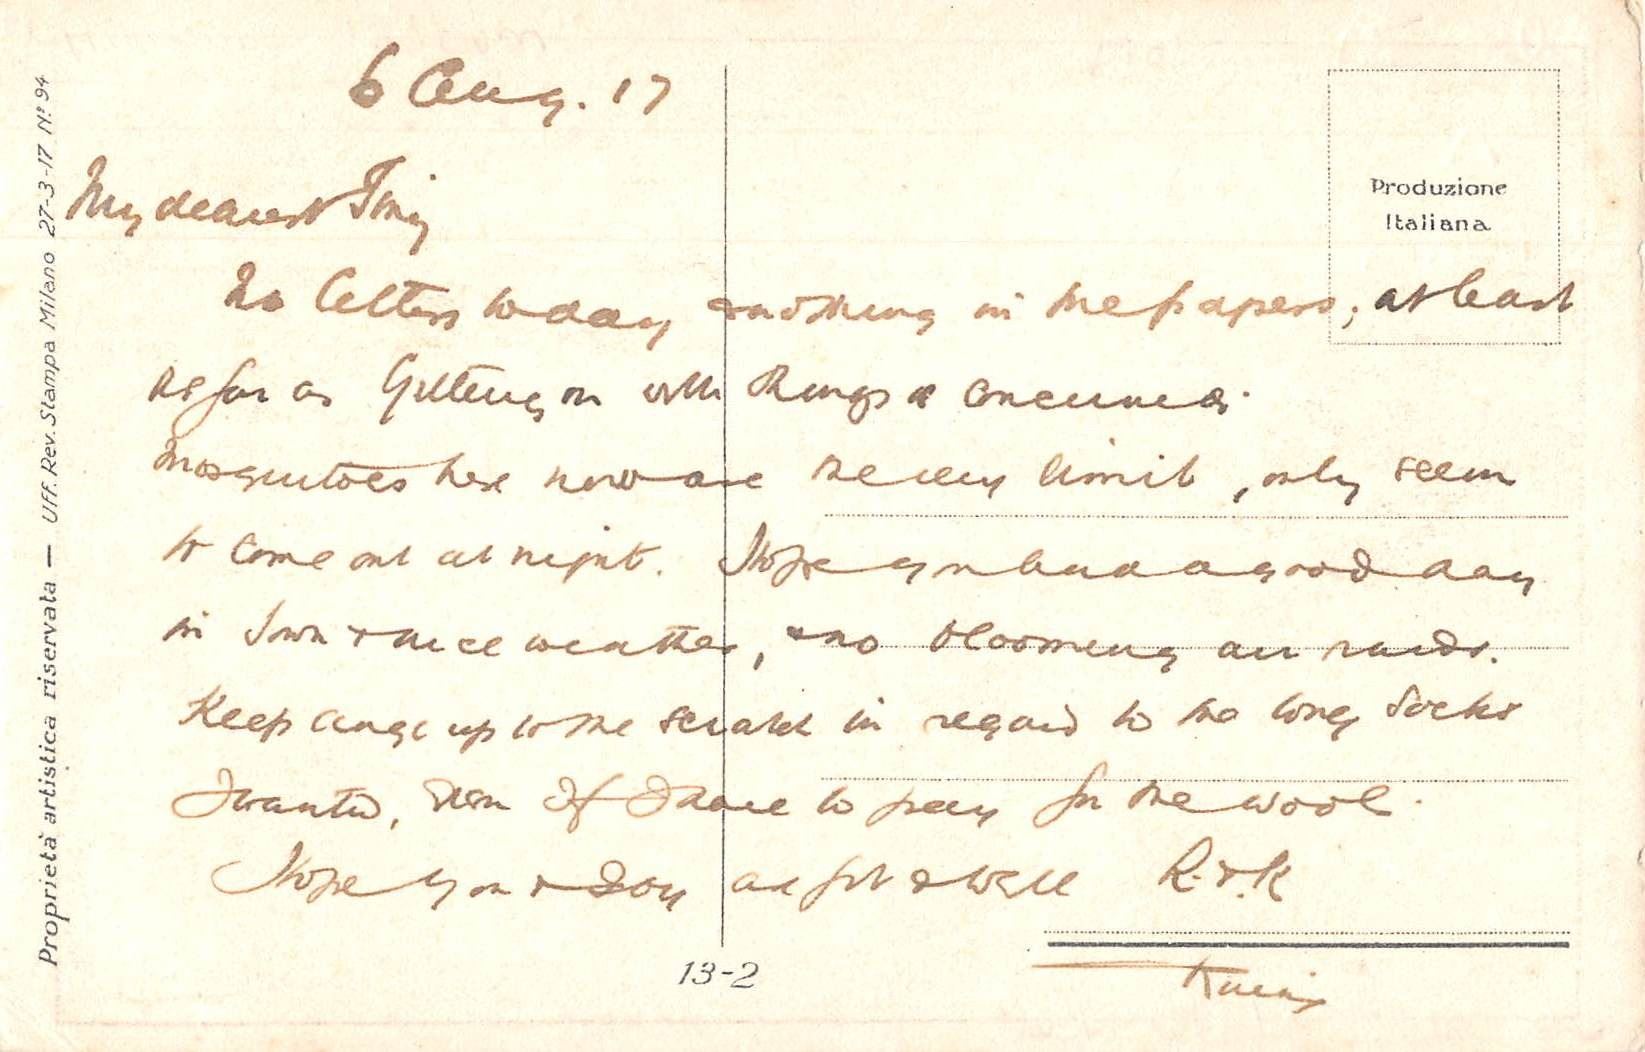 6 Aug. 17
My dearest Tiny
No letters today & nothing in the papers, at least
as far as getting on with things is concerned.
Mosquitoes here now are the very limit, only seem
to come out at night. Hope you had a good day
in Town & nice weather, & no blooming air raids.
Keep Ange up to the scratch in regard to the long socks
I wanted, even if I have to pay for the wool.
Hope you & Boy are fit & well R. & K
Produzione
Italiana
Proprietà artistica riservata — Uff. Rev. Stampa Milano 27-3-17 N° 94
13-2